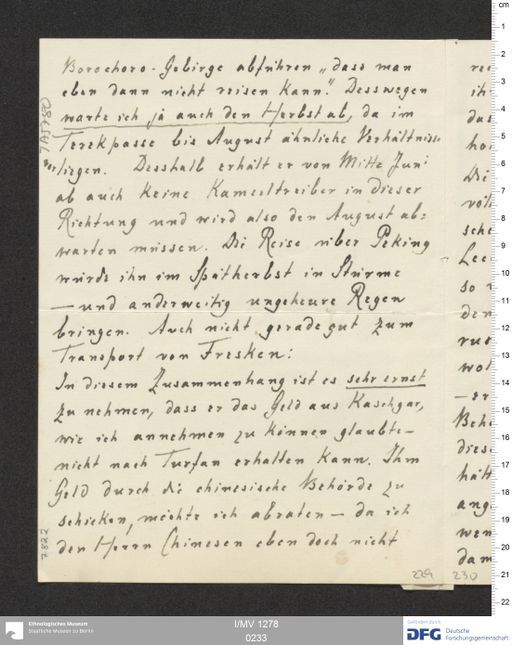 Borochoro-Gebirge abführen „dass man
eben dann nicht reisen kann." Desswegen
warte ich ja auch den Herbst ab, da im
Terekpasse bis August ähnliche Verhältnisse
vorliegen. Desshalb erhält er von Mitte Juni
ab auch keine Kameeltreiber in dieser
Richtung und wird also den August ab=
warten müssen. Die Reise über Peking
würde ihn im Spätherbst in Stürme
— und anderweitig ungeheure Regen
bringen. Auch nicht gerade gut zum
Transport von Fresken!
In diesem Zusammenhang ist es sehr ernst
zu nehmen, dass er das Geld aus Kaschgar,
wie ich annehmen zu können glaubte—
nicht nach Turfan erhalten kann. Ihm
Geld durch die chinesische Behörde zu
schicken, möchte ich abraten — da ich
den Herrn Chinesen eben doch nicht
229
230
I/MV 1278
0233
Ethnologisches Museum
Staatliche Museen zu Berlin
Gefördert durch
DFG Deutsche
Forschungsgemeinschaft